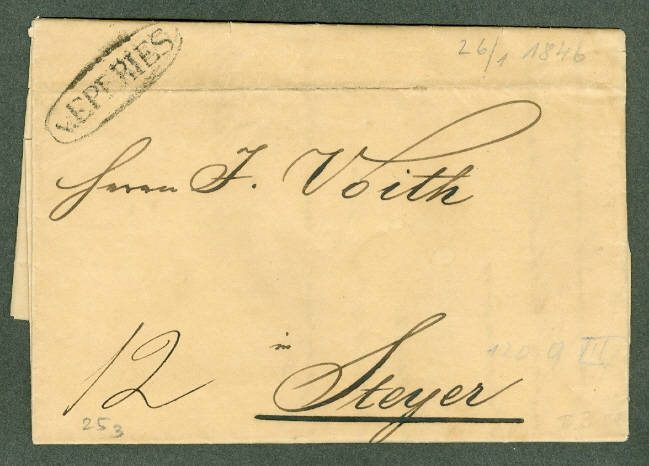 v. EPERIES
26/1 1846
Herrn J. Voith
12 in Steyer
25 3
120.9 III